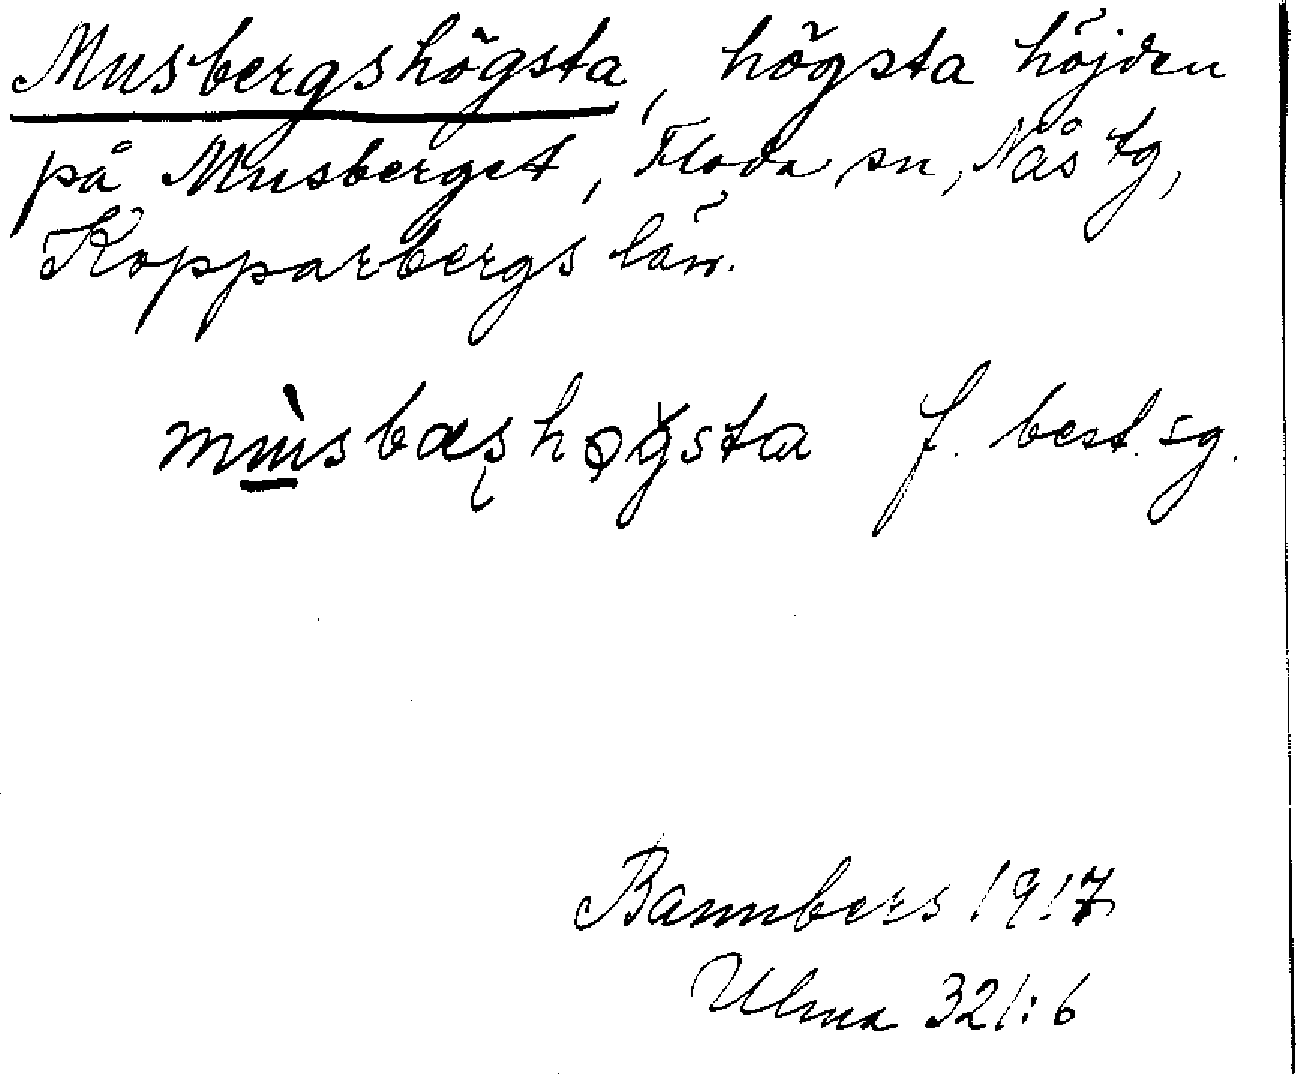 Musbergshögsta, högsta höjden
på Musberget, Floda sn, Nås tg,
Kopparbergs län.
f. best. sg.
Bannbers 1917
Ulma 321:6